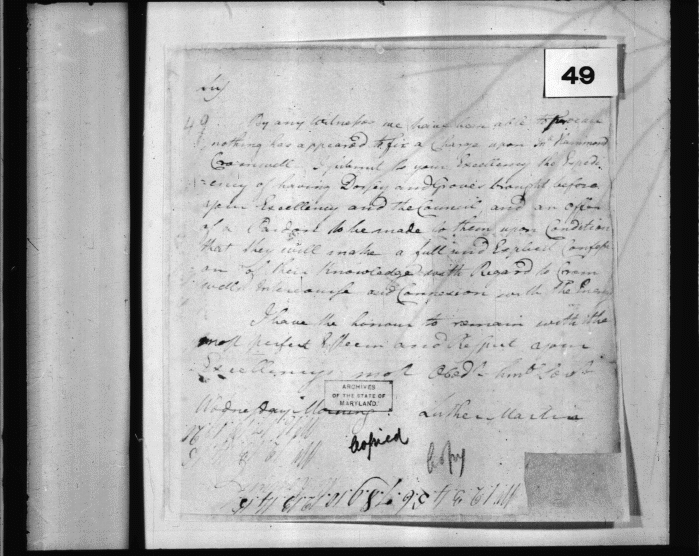 49
Sir
49 By any Witnesses we have been able to procure
nothing has appeared to fix a Charge upon Mr Hammond
Cromwell. I submit to your Excellency the Expedi-
ency of having Dorsey and Groves brought before
your Excellency and the Council and an offer
of a Pardon to be made to them upon Condition
that they will make a full and Explicit Confessi
on of their Knowledge with Regard to Crom
wells Intercourse and Connexion with the Enemy
I have the honour to remain with the
most perfect Esteem and Respect your
Excellencys most Obedt humb Servt
Wednesday Morning. Luther Martin
ARCHIVES
OF THE STATE OF
MARYLAND.
Copied
Copy